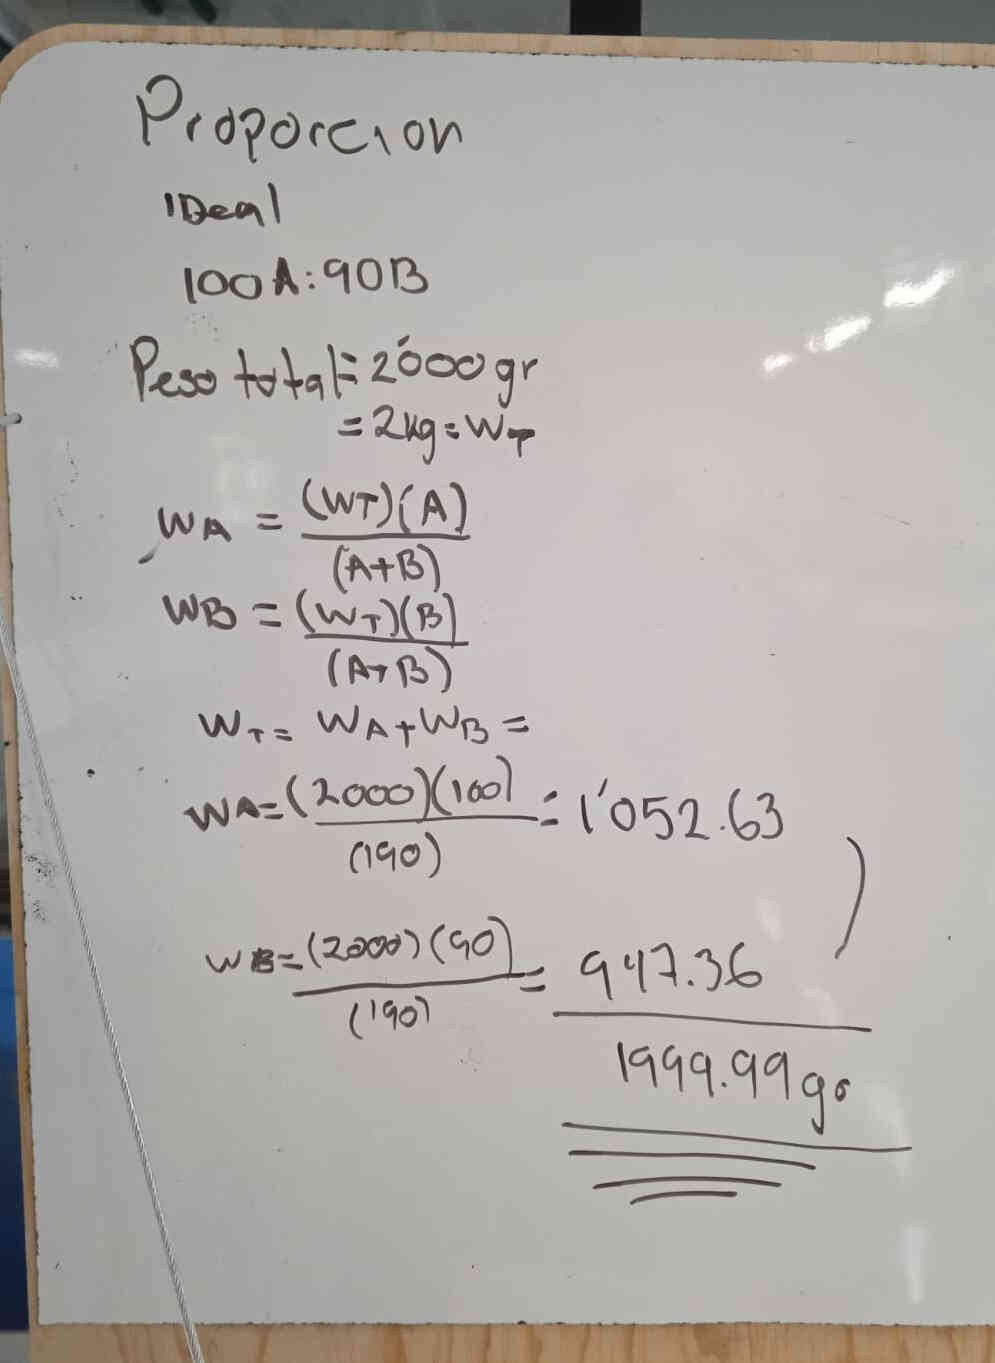 Proporcion
IDeal
100A:90B
Peso total = 2'000 gr
= 2kg = WT
WA = (WT)(A)
(A+B)
WB = (WT)(B)
(A+B)
WT = WA+WB =
WA = (2000)(100) = 1'052.63
(190)
WB = (2000)(90) = 947.36
(190)
1999.99 gr